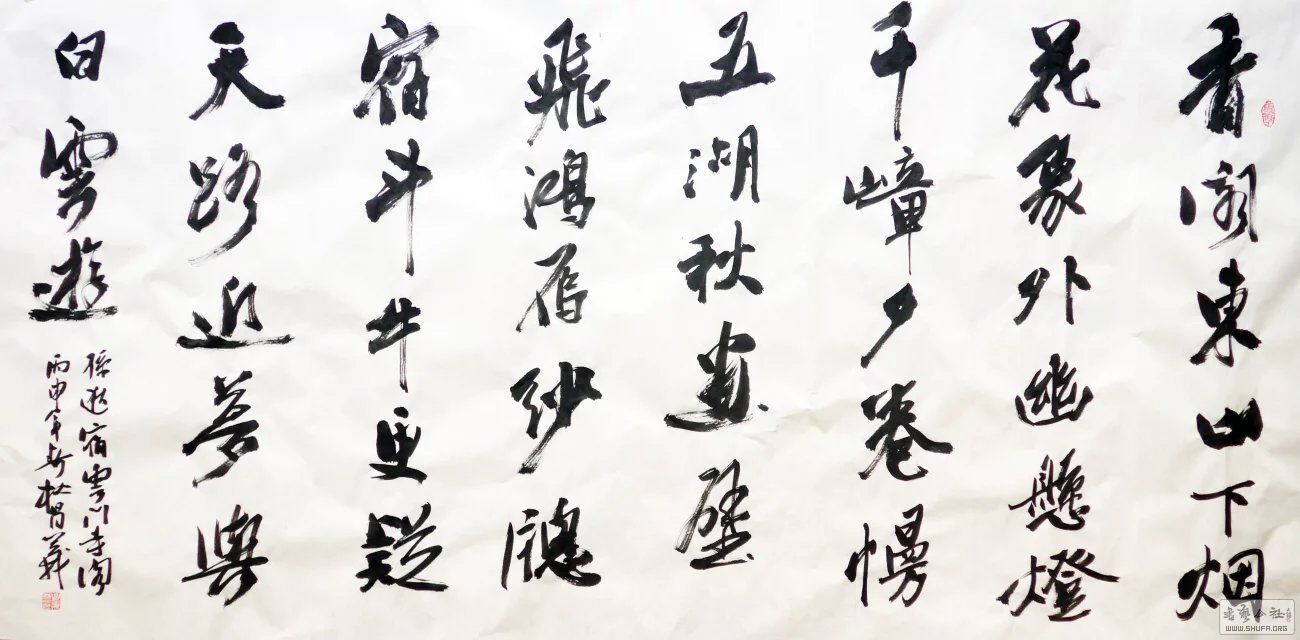 香閣東山下烟
花象外幽懸燈
千嶂夕卷幔
五湖秋畫壁
飛鴻雁紗牕
宿斗牛更疑
天路近夢與
白雲遊
孫逖宿雲門寺閣
丙申年
書藝公社
WWW.SHUFA.ORG